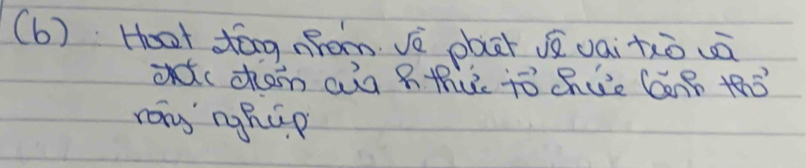 (6) Hoạt động nhóm. Vẽ phát vẽ vai trò và
đặc điểm của h thức tổ chức lãnh thổ
nông nghiệp